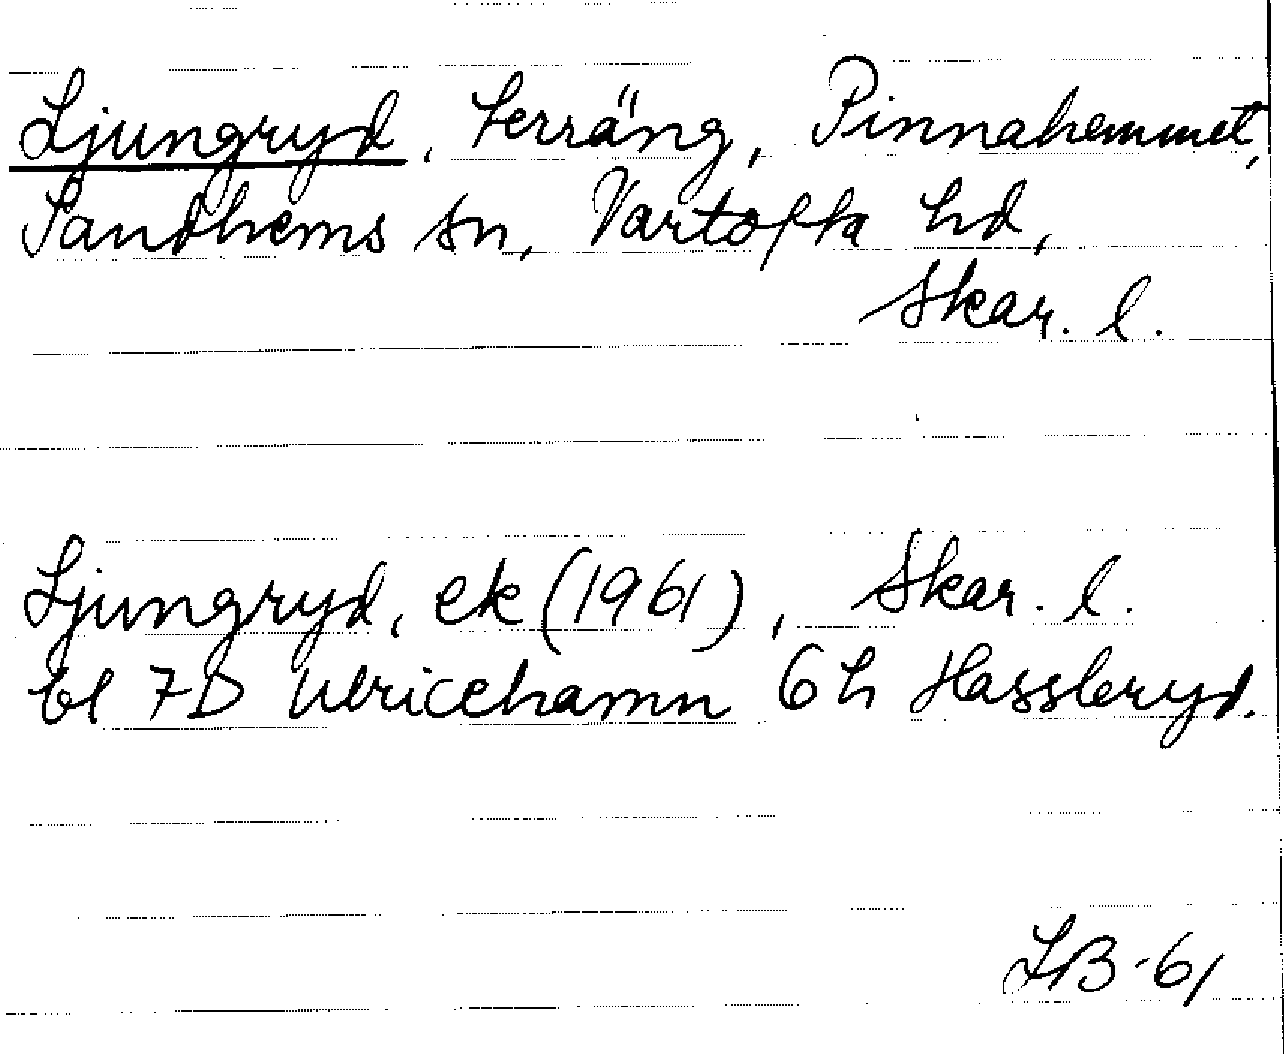 Ljungryd, terräng, Pinnahemmet,
Sandhems sn, Vartofta hd,
Skar. l.
Ljungryd, ek (1961), Skar. l.
bl 7D Ulricehamn 6h Hassleryd.
LB-61